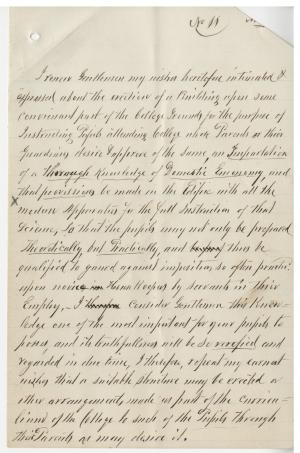 No 11
I renew Gentlemen my wishes heretofore intimated &
expressed about the erection of a Building upon some
convenient part of the College Grounds for the purpose of
Instructing Pupils attending College whose Parents or their
Guardians desire & approve of the same, an Impartation
of a thorough Knowledge of Domestic Economy, and
that provision be made in the Edifice with all the
modern Apparatus for the full Instruction of that
Science, so that the pupils may not only be prepared
Theoretically but Practically, and thus be
qualified to guard against imposition so often practised
upon novice Housekeepers by servants in their
Employ, – I Consider Gentlemen this Know-
ledge one of the most important for your pupils to
possess, and its truthfullness will be so verified and
regarded in due time, I therefore, repeat my earnest
wishes that a suitable structure may be erected or
other arrangements made as part of the curricu-
lum of the College to such of the Pupils through
their Parents as may desire it.